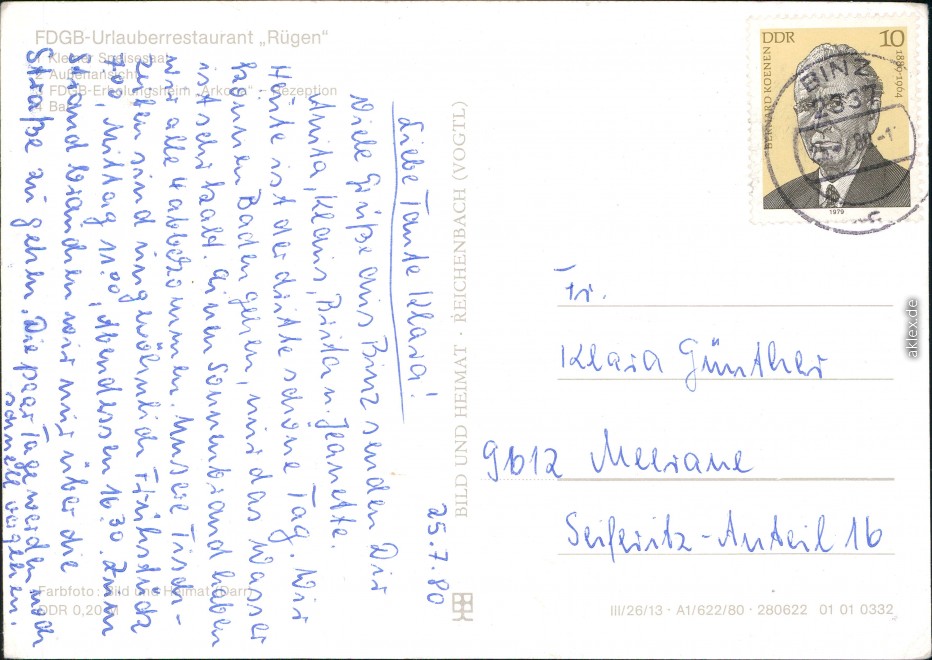 FDGB-Urlauberrestaurant „Rügen"
1 Kleiner Speisesaal
2 Außenansicht
3 FDGB-Erholungsheim „Arkona" – Rezeption
4 Bar
25.7.80
Liebe Tante Klara!
Viele Grüße aus Binz senden Dir
Anita, Klaus, Britta u. Jeanette.
Heute ist der dritte schöne Tag. Wir
können Baden gehen, nur das Wasser
ist sehr kalt. einen Sonnenbrand haben
wir alle 4 abbekommen. Unsere Tisch-
zeiten sind ungewöhnlich Frühstück
7.00, Mittag 11.00, Abendessen 16.30. Zum
Strand brauchen wir nur über die
Straße zu gehen. Die paar Tage werden auch
schnell vergehen.
BILD UND HEIMAT · REICHENBACH (VOGTL)
DDR 10
BERNARD KOENEN 1889-1964
1979
BINZ
2337
Fr.
Klara Günther
9612 Meerane
Seiferitz-Anteil 16
Farbfoto: Bild und Heimat (Darr)
DDR 0,20 M
III/26/13 · A1/622/80 · 280622 01 01 0332
aklex.de